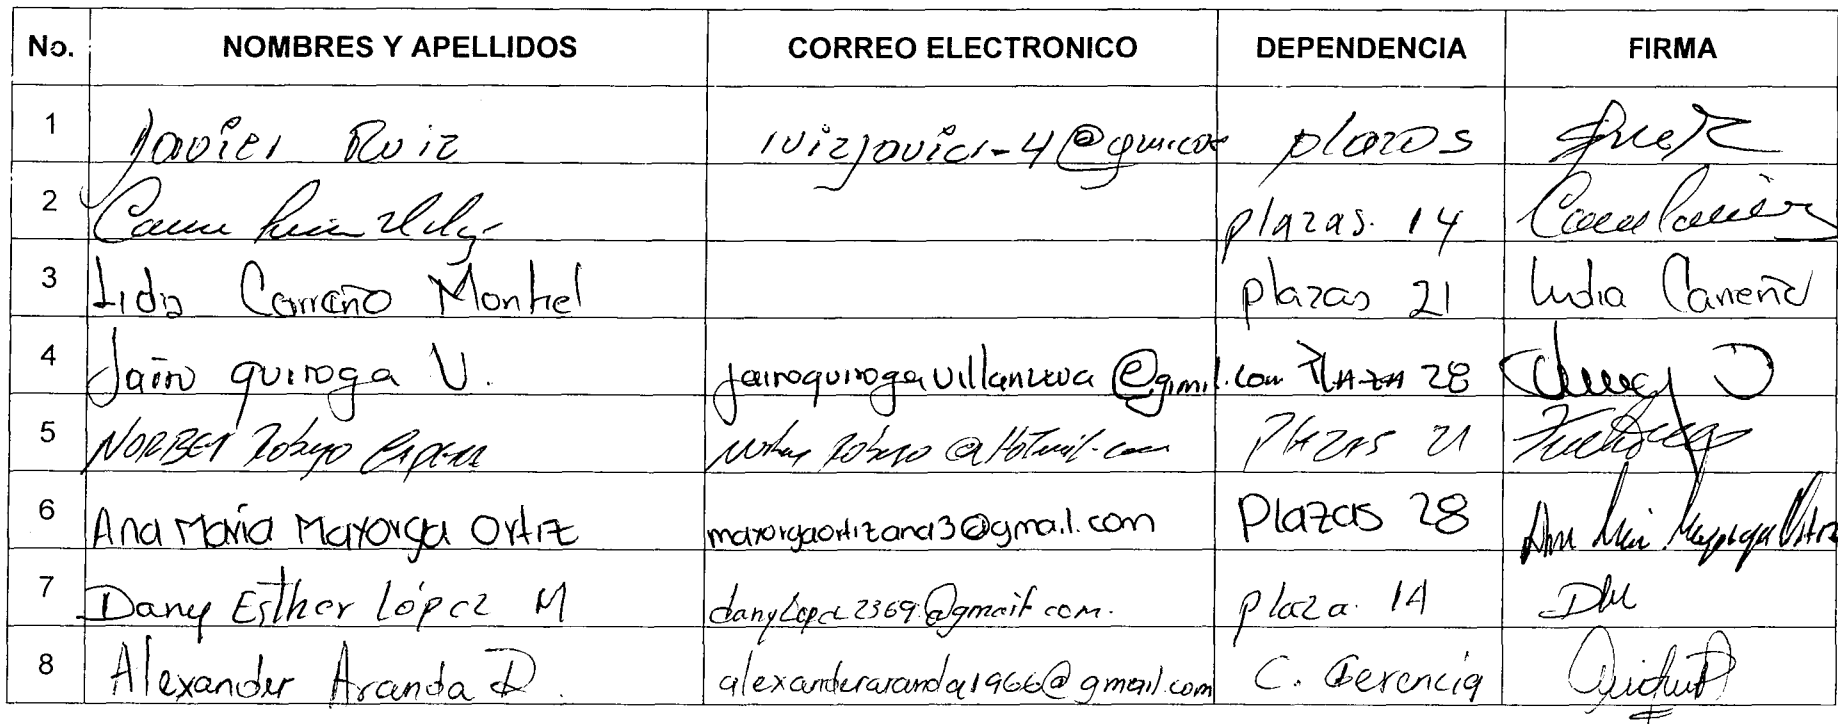 No. NOMBRES Y APELLIDOS CORREO ELECTRONICO DEPENDENCIA FIRMA
1 Javier Ruiz ruizjavier-4@gmicos plazas
2 plazas. 14
3 Lida Carreño Montiel plazas 21 Lidia Carreño
4 Jairo quiroga V. jairoquirogavillanueva@gmil.com PLAZA 28
5 NORBEY Robayo @Hotmail.com Plazas 21
6 Ana María Mayorga Ortiz mayorgaortizana3@gmail.com Plazas 28 Ana Mayorga Ortiz
7 Dany Esther López M danylopez2369@gmail.com. plaza 14
8 Alexander Aranda D. alexanderaranda1966@gmail.com C. Gerencia